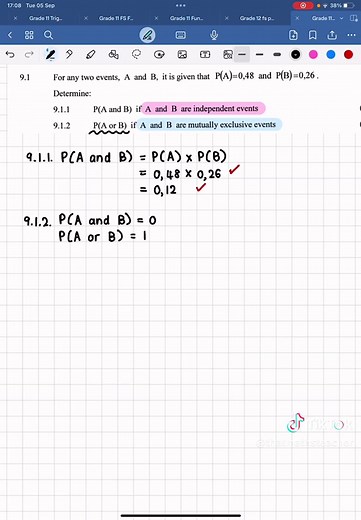 17:08 Tue 05 Sep
38%
Grade 11 Trig... Grade 11 FS F... Grade 11 Fun... Grade 12 fs p... Grade 11...
9.1 For any two events, A and B, it is given that P(A)=0,48 and P(B)=0,26.
Determine:
9.1.1 P(A and B) if A and B are independent events
9.1.2 P(A or B) if A and B are mutually exclusive events
9.1.1. P(A and B) = P(A) x P(B)
= 0,48 x 0,26 ✓
= 0,12 ✓
9.1.2. P(A and B) = 0
P(A or B) = 1